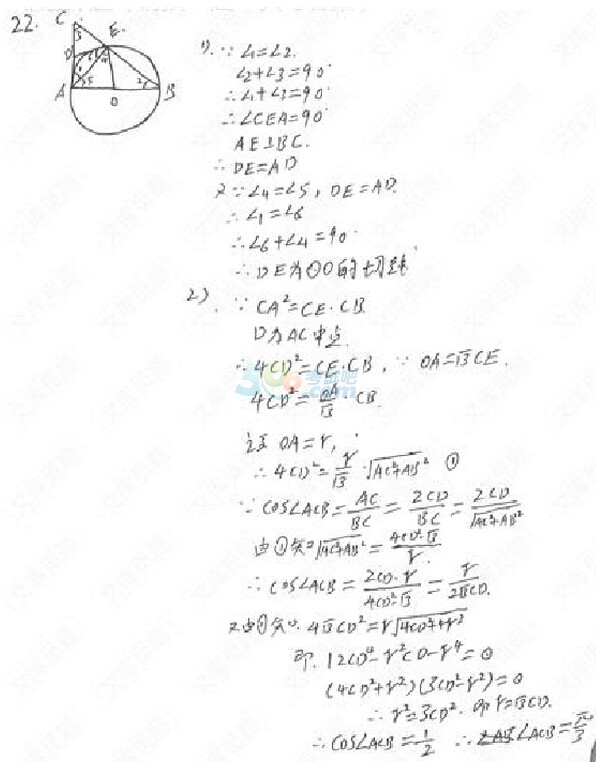 22.
C
3
E
D
A
5
2
B
O
1). ∵ ∠1=∠2.
∠2+∠3=90°
∴ ∠1+∠3=90°
∴ ∠CEA=90°
AE⊥BC.
∴ DE=AD
又∵ ∠4=∠5, DE=AD.
∴ ∠1=∠6
∴ ∠6+∠4=90°
∴ DE为⊙O的切线
2). ∵ CA²=CE·CB.
D为AC中点.
∴ 4CD²=CE·CB, ∵ OA=√3CE.
4CD²=OA/√3·CB.
设 OA=r,
∴ 4CD²=r/√3·√(AC²+AB²) ①
∵ COS∠ACB=AC/BC=2CD/BC=2CD/√(AC²+AB²)
由①知√(AC²+AB²)=4CD²·√3/r
∴ COS∠ACB=2CD·r/(4CD²·√3)=r/(2√3CD).
又由①知. 4√3CD²=r√(4CD²+4r²)
即. 12CD⁴-r²CD-r⁴=0
(4CD²+r²)(3CD²-r²)=0
∴ r²=3CD². 即r=√3CD.
∴ COS∠ACB=1/2 ∴ ∠ACB=π/3